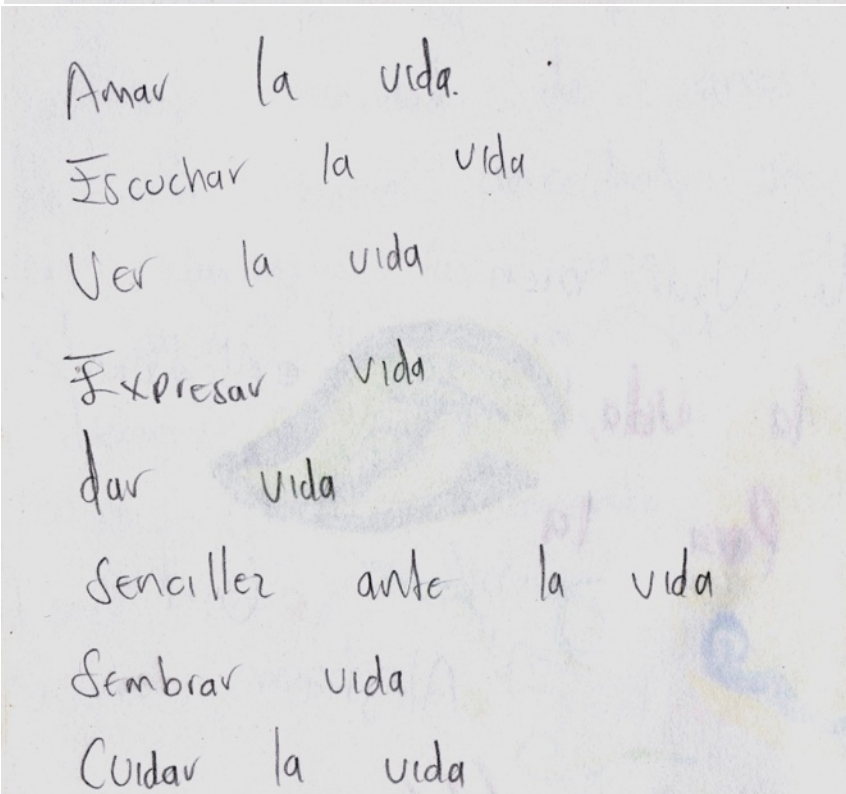 Amar la vida.
Escuchar la vida
Ver la vida
Expresar vida
dar vida
Sencillez ante la vida
Sembrar vida
Cuidar la vida